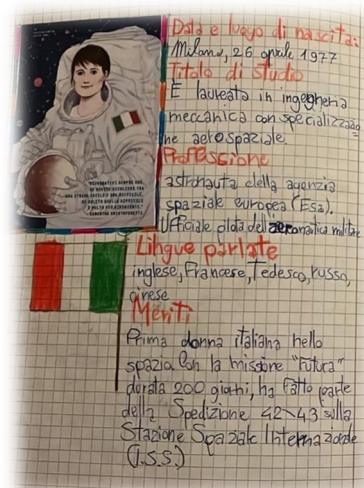 Data e luogo di nascita:
Milano, 26 aprile 1977
Titolo di studio
È laureata in ingegneria
meccanica con specializzazio
ne aerospaziale.
Professione
astronauta della agenzia
spaziale europea (Esa).
Ufficiale pilota dell'aeronautica militare
Lingue parlate
inglese, Francese, Tedesco, russo,
cinese
Meriti
Prima donna italiana nello
spazio. Con la missione "Futura"
durata 200 giorni, ha fatto parte
della Spedizione 42\43 sulla
Stazione Spaziale Internazionale
(I.S.S.)
SAMANTHA CRISTOFORETTI